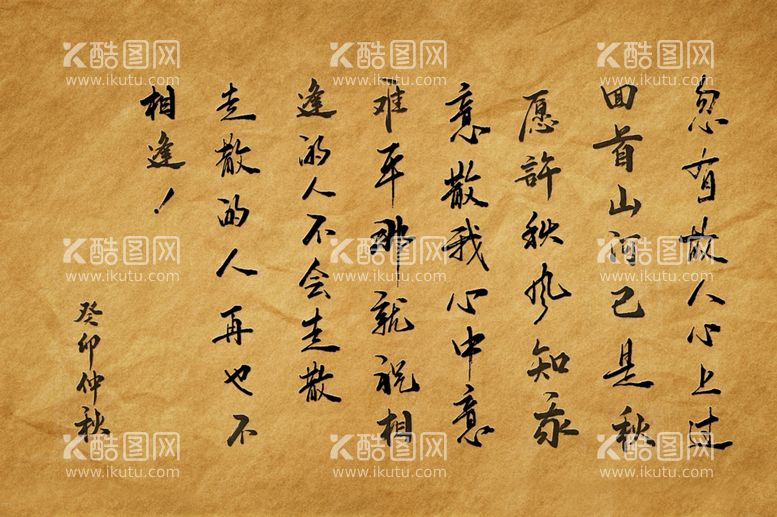 忽有故人心上过
回首山河已是秋
愿許秋风知我
意散我心中意
难平那就祝相
逢的人不会走散
走散的人再也不
相逢！
癸卯仲秋
K酷图网
www.ikutu.com
K酷图网
www.ikutu.com
K酷图网
www.ikutu.com
K酷图网
www.ikutu.com
K酷图网
www.ikutu.com
K酷图网
www.ikutu.com
K酷图网
www.ikutu.com
K酷图网
www.ikutu.com
K酷图网
www.ikutu.com